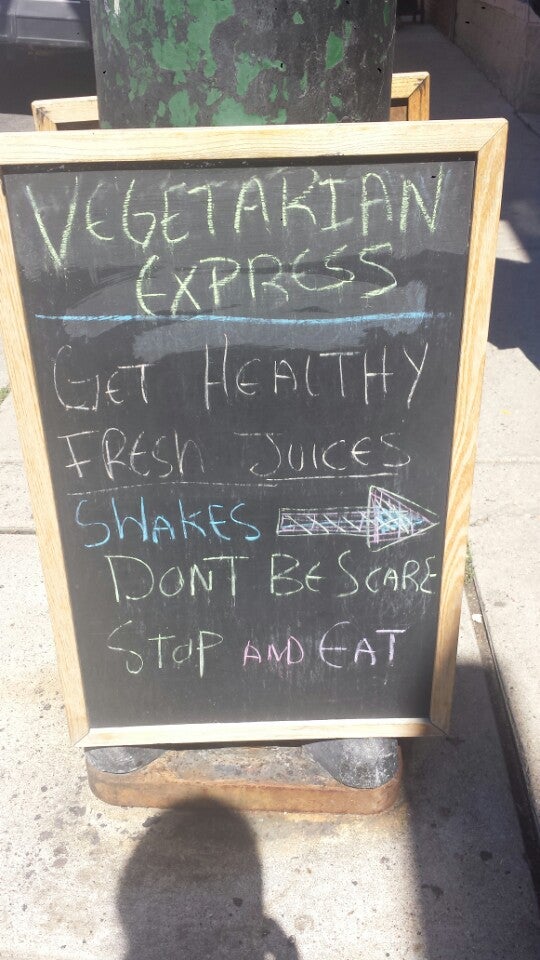 VEGETARIAN
EXPRESS
GET HEALTHY
FRESH JUICES
SHAKES
DONT BE SCARE
STOP AND EAT